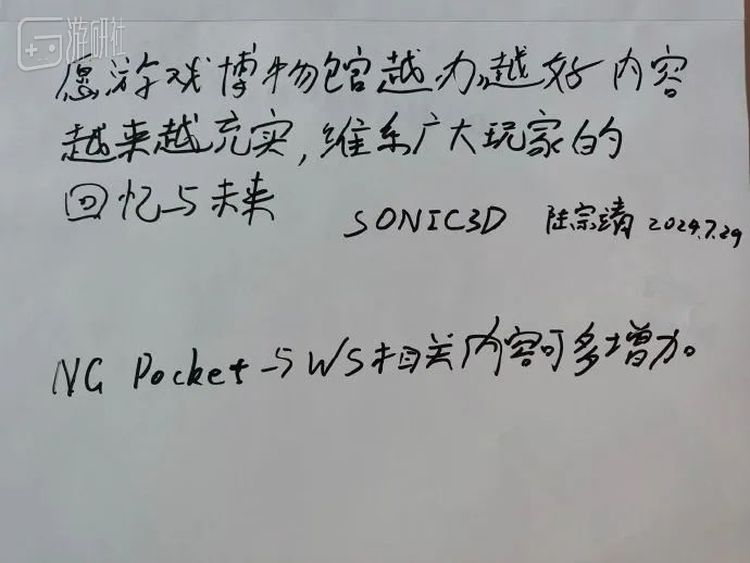 游研社
愿游戏博物馆越办越好内容
越来越充实,维系广大玩家的
回忆与未来
SONIC3D 陆宗靖 2024.7.29
NG Pocket与WS相关内容可多增加。